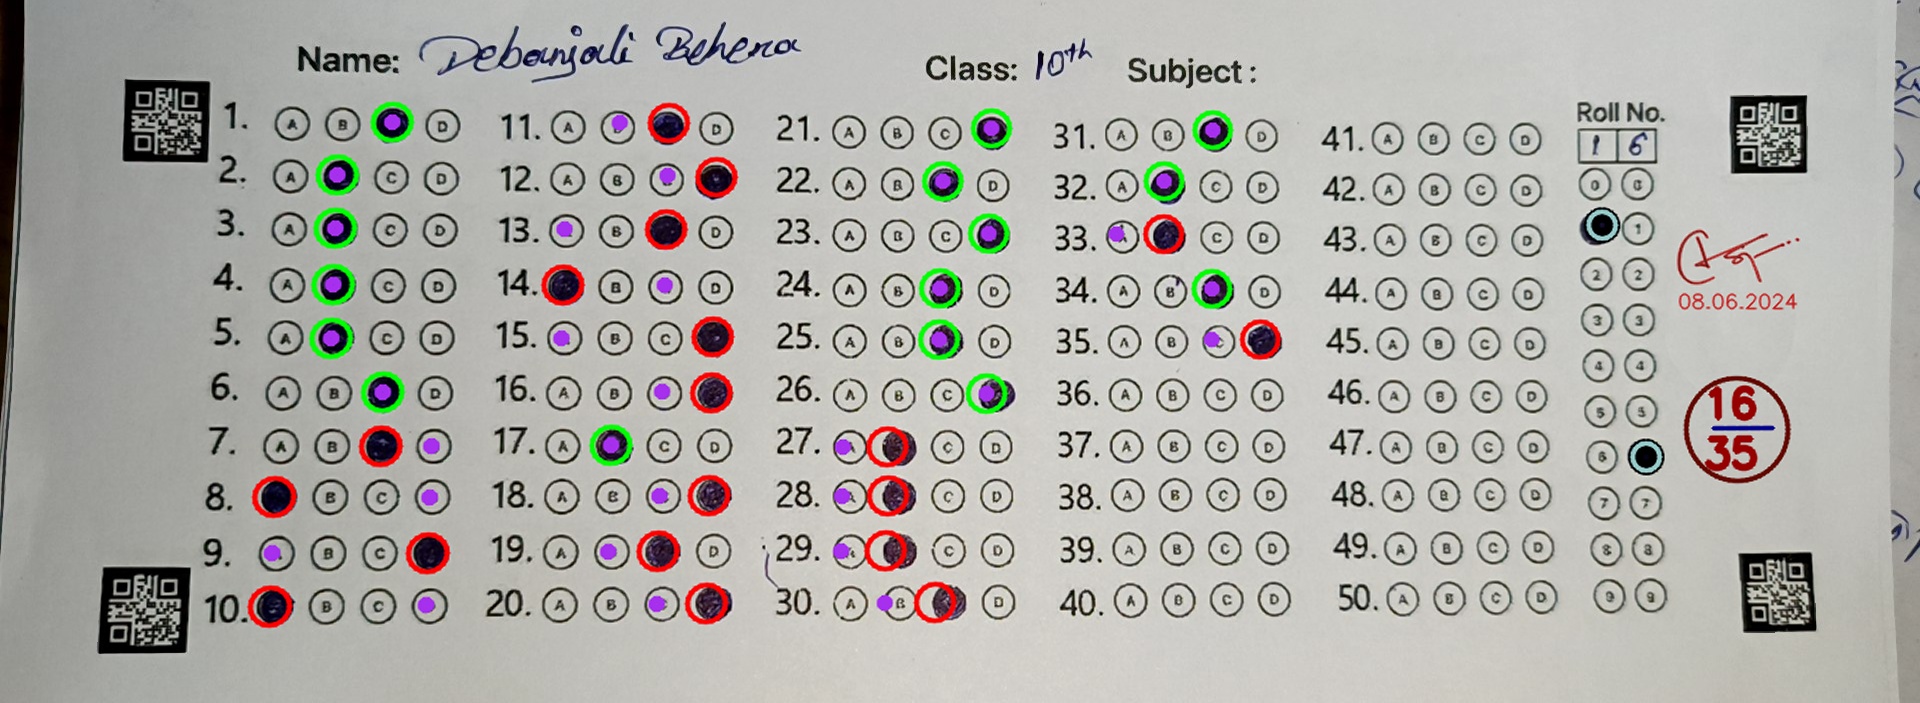 Name: Debanjali Behera
Class: 10th Subject :
Roll No.
1 6
1. A B D
2. A C D
3. A C D
4. A C D
5. A C D
6. A B D
7. A B
8. B C
9. B C
10. B C
11. A D
12. A B
13. B D
14. B D
15. B C
16. A B
17. A C D
18. A B
19. A D
20. A B
21. A B C
22. A B D
23. A B C
24. A B D
25. A B D
26. A B C
27. C D
28. A C D
29. C D
30. A B D
31. A B D
32. A C D
33. A C D
34. A B D
35. A B
36. A B C D
37. A B C D
38. A B C D
39. A B C D
40. A B C D
41. A B C D
42. A B C D
43. A B C D
44. A B C D
45. A B C D
46. A B C D
47. A B C D
48. A B C D
49. A B C D
50. A B C D
0 0
1
2 2
3 3
4 4
5 5
6
7 7
8 8
9 9
08.06.2024
16
35